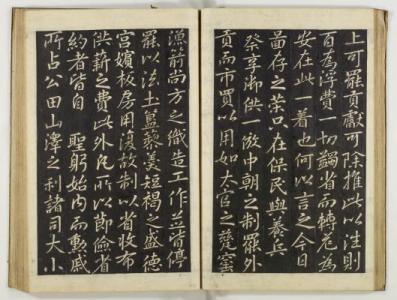 上可罷貢獻可除推此以往則
百為浮費一切蠲省而轉危為
安在此一着也何以言之今日
圖存之策只在保民與養兵
癸享御供一倣中朝之制罷外
貢而市買以用如太官之
漁箭尚方之織造工作並皆停
罷以法土簋藜羹短褐之盛德
宮嬪板房用復故制以省收布
供薪之費此外凡所以節儉省
約者皆自聖躬始內而勳戚
所占公田山澤之利諸司大小